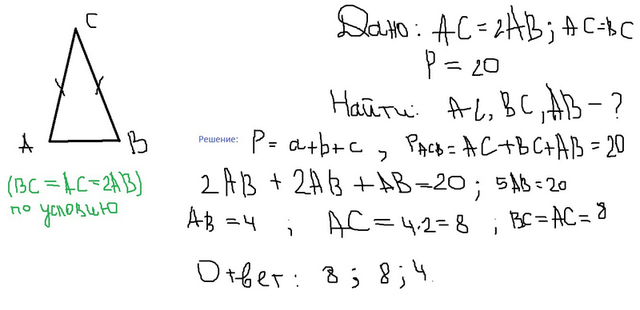 C
Дано: AC=2AB; AC=BC
P=20
Найти: AC, BC, AB-?
A
B
Решение: P=a+b+c, PACB=AC+BC+AB=20
(BC=AC=2AB)
по условию
2AB+2AB+AB=20; 5AB=20
AB=4; AC=4·2=8; BC=AC=8
Ответ: 8; 8; 4.